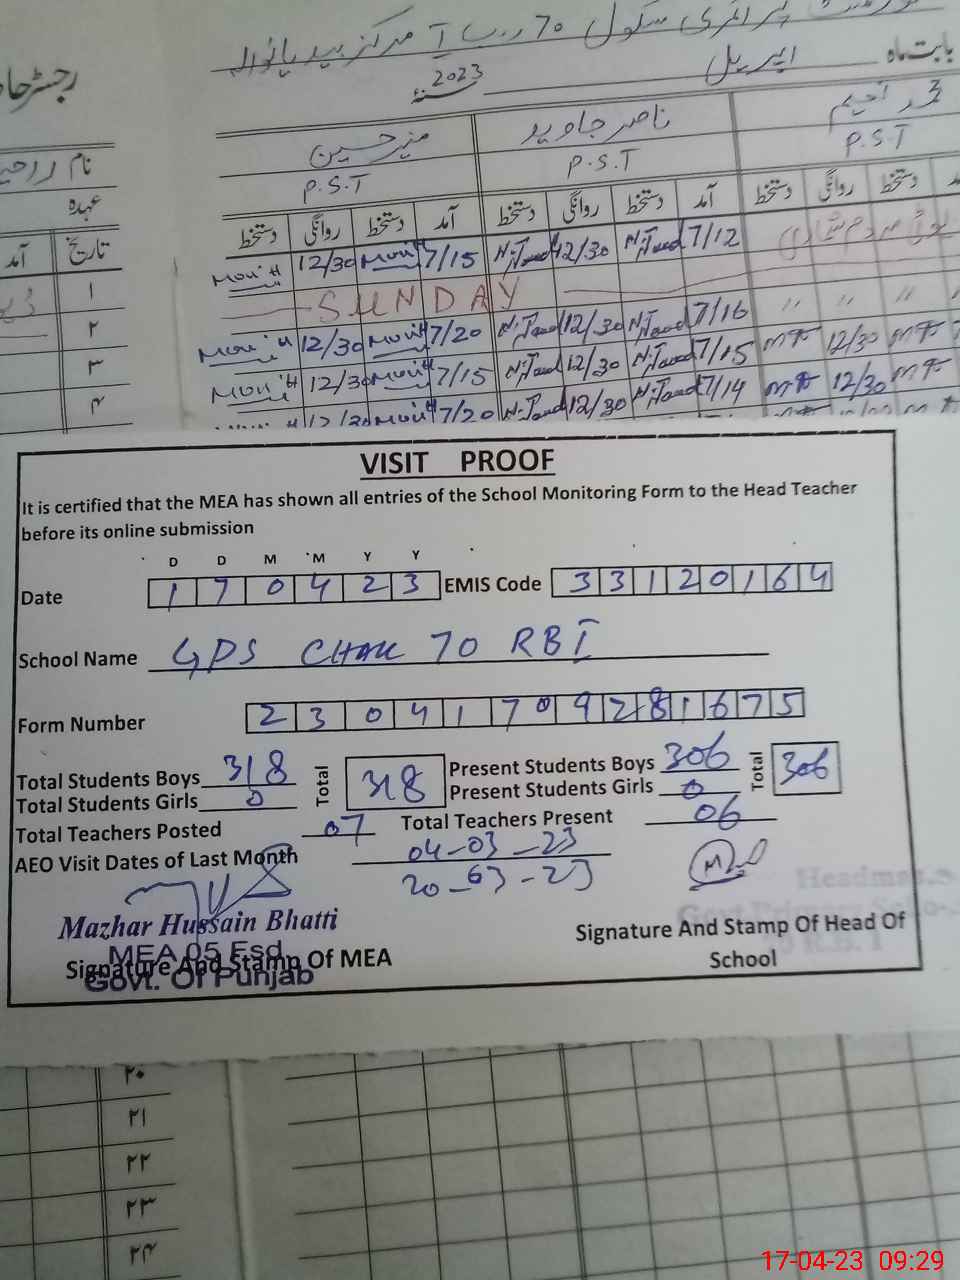 پرائمری سکول 70 ر ب I مرکز بیدیانوالہ
بابت ماہ اپریل سنۂ 2023
رجسٹر حا
منیر حسین ناصر جاوید
P.S.T P.S.T P.S.T
نام
عہدہ
دستخط روانگی دستخط آمد دستخط روانگی دستخط آمد دستخط روانگی دستخط
تاریخ آمد
12/30 7/15 12/30 7/12
۱ SUNDAY
۲ 12/30 7/20 12/30 7/16 〃 〃 〃
۳ 12/30 7/15 12/30 7/15 12/30
۴ 12/30 7/20 12/30 7/14 12/30
VISIT PROOF
It is certified that the MEA has shown all entries of the School Monitoring Form to the Head Teacher
before its online submission
D D M M Y Y
Date 1 7 0 4 2 3 EMIS Code 3 3 1 2 0 1 6 4
School Name GPS CHAK 70 RB I
Form Number 2 3 0 4 1 7 0 9 2 8 1 6 7 5
Total Students Boys 318 Total 318 Present Students Boys 306 Total 306
Total Students Girls 0 Present Students Girls 0
Total Teachers Posted 07 Total Teachers Present 06
AEO Visit Dates of Last Month 04-03-23
20-03-23
Mazhar Hussain Bhatti
MEA 05 Fsd
Govt. Of Punjab
Signature And Stamp Of MEA
Headmas
Govt Primary Scho
70 R.B. I
Signature And Stamp Of Head Of
School
۲۰
۲۱
۲۲
۲۳
۲۴
17-04-23 09:29